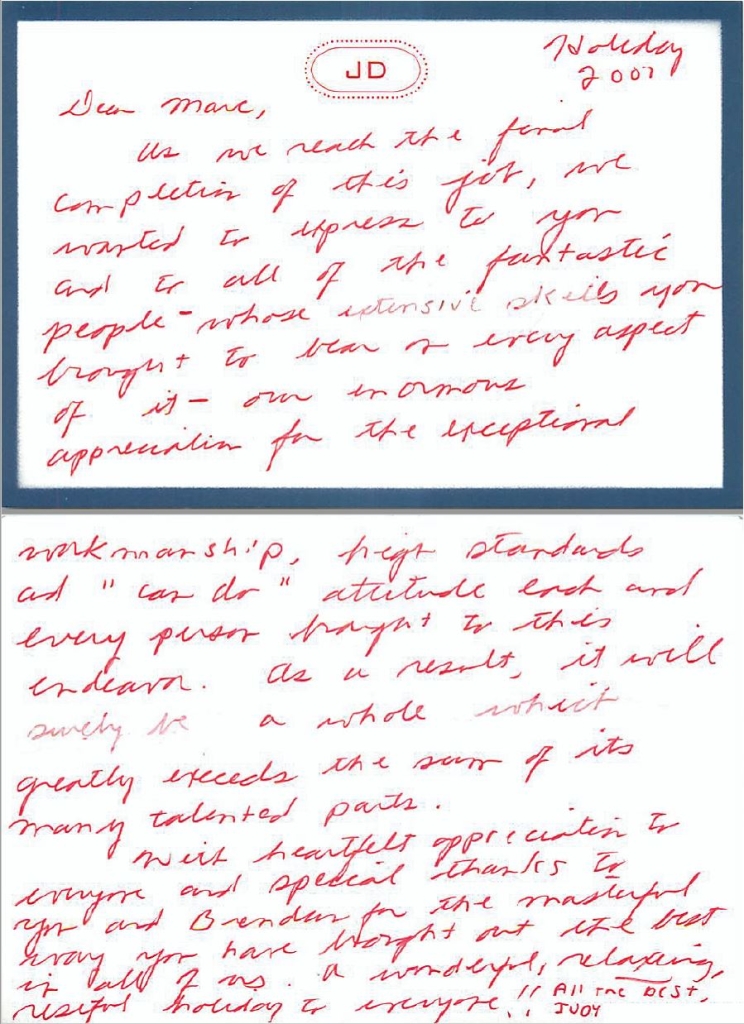 JD
Holiday
2007
Dear Marc,
As we reach the final
completion of this job, we
wanted to express to you
and to all of the fantastic
people - whose extensive skills you
brought to bear on every aspect
of it - our enormous
appreciation for the exceptional
workmanship, high standards
and "can do" attitude each and
every person brought to this
endeavor. As a result, it will
surely be a whole which
greatly exceeds the sum of its
many talented parts.
With heartfelt appreciation to
everyone and special thanks to
you and Brendan for the masterful
way you have brought out the best
in all of us. A wonderful, relaxing,
restful holiday to everyone!! All the best,
JUDY